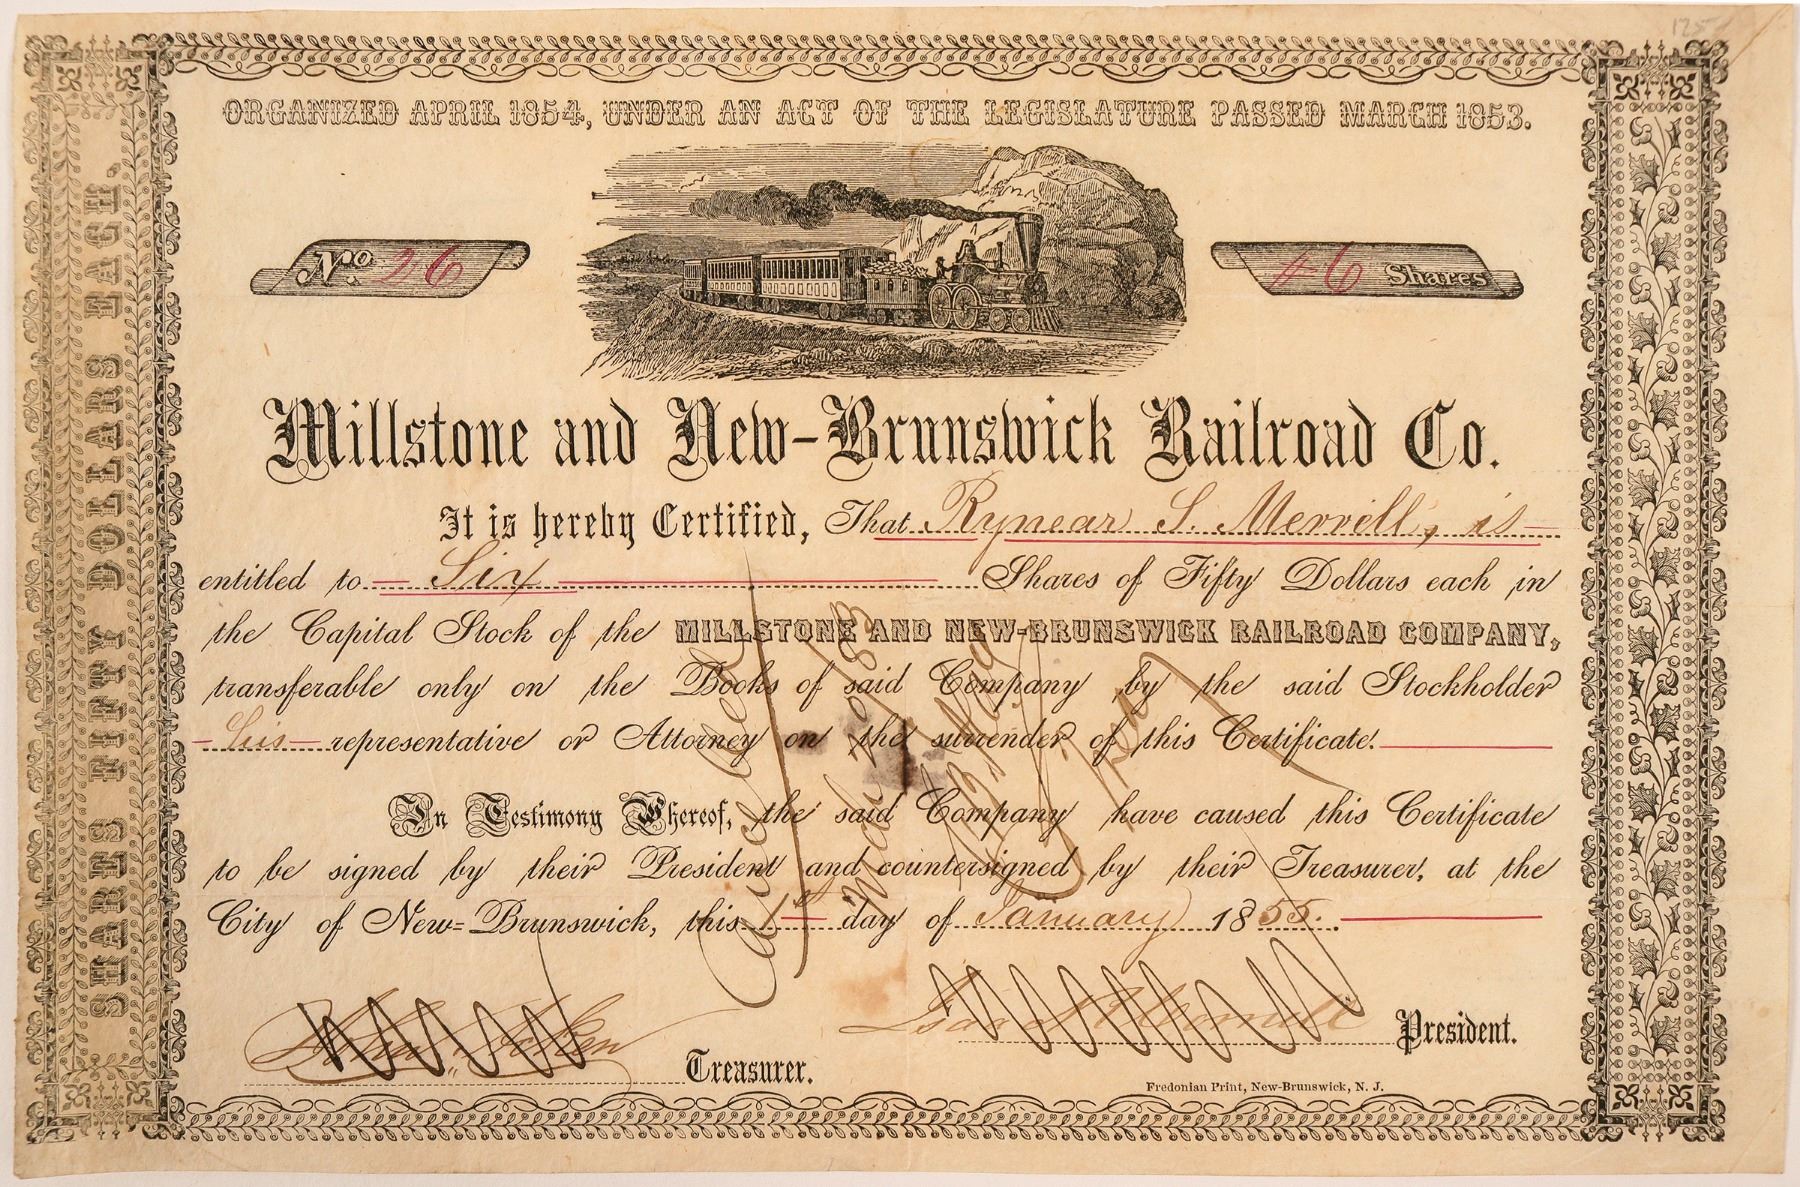 125
ORGANIZED APRIL 1854, UNDER AN ACT OF THE LEGISLATURE PASSED MARCH 1853.
No. 26
6 Shares
SHARES FIFTY DOLLARS EACH.
Millstone and New-Brunswick Railroad Co.
It is hereby Certified, That Rynear S. Merrell, is
entitled to Six Shares of Fifty Dollars each in
the Capital Stock of the MILLSTONE AND NEW-BRUNSWICK RAILROAD COMPANY,
transferable only on the Books of said Company by the said Stockholder
his representative or Attorney on the surrender of this Certificate.
In Testimony Whereof, the said Company have caused this Certificate
to be signed by their President and countersigned by their Treasurer, at the
City of New-Brunswick, this 1st day of January 1855.
Treasurer.
President.
Fredonian Print, New-Brunswick, N. J.